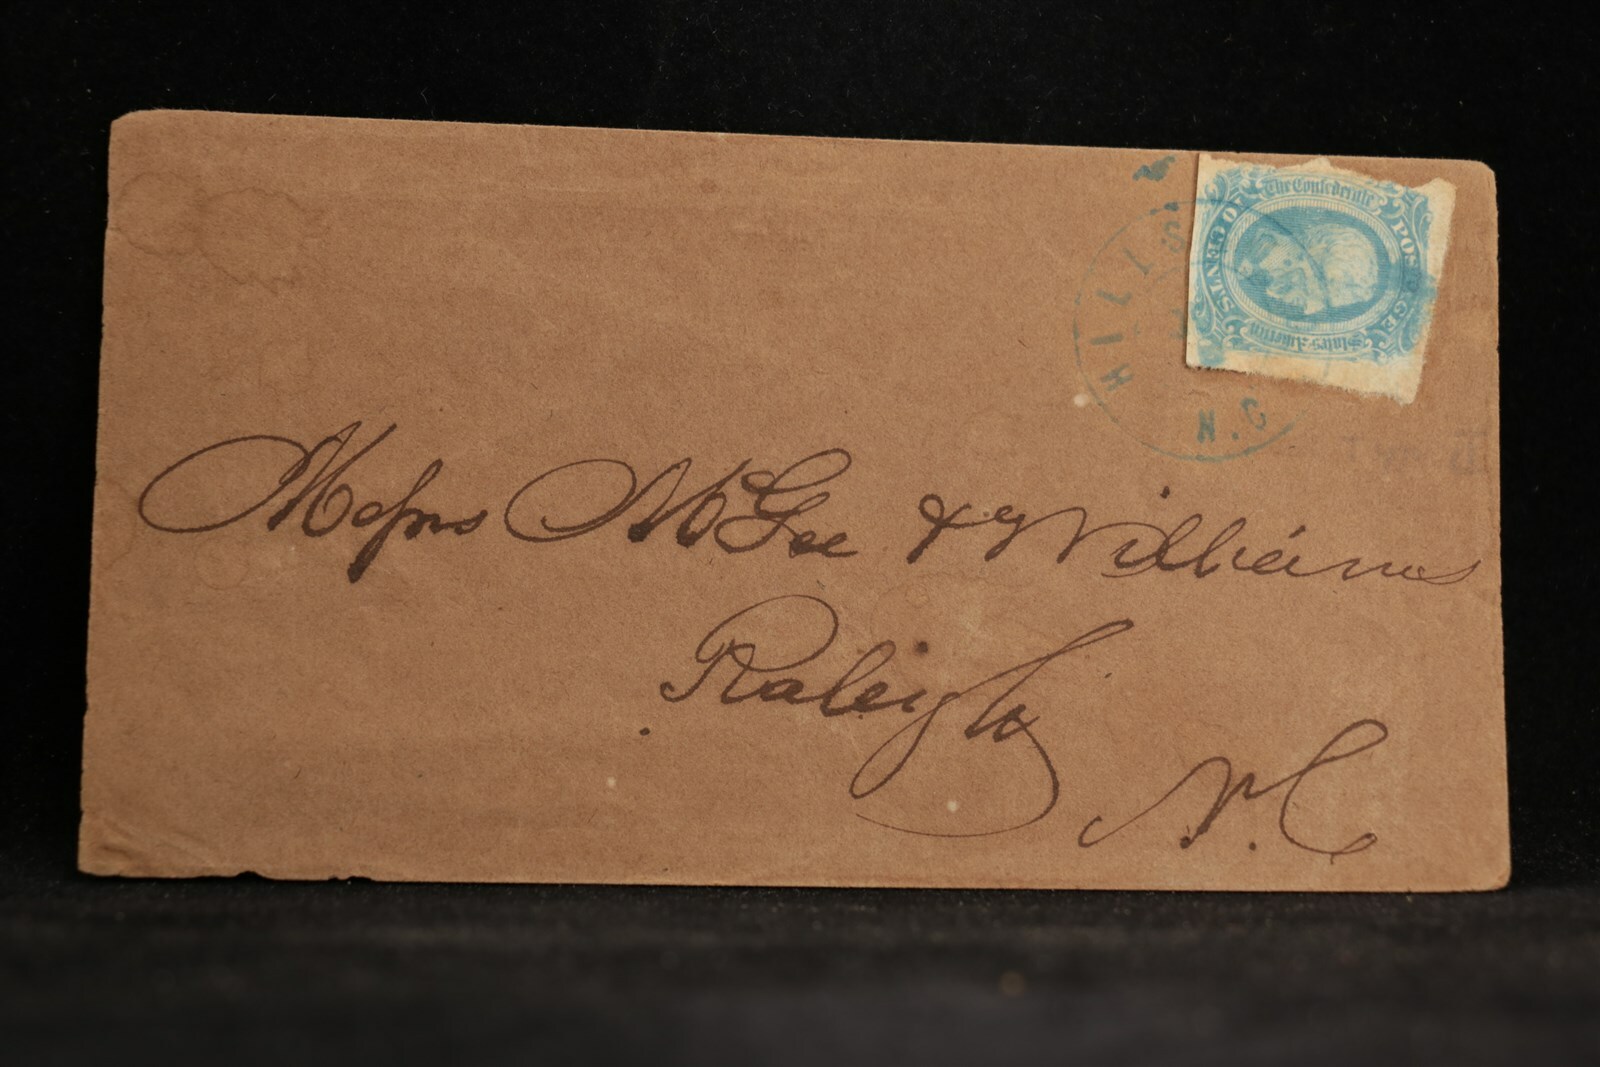 The Confederate
States America
POSTAGE
10 CENTS
HILL
N.C
Messrs McGee & Williams
Raleigh
N.C.